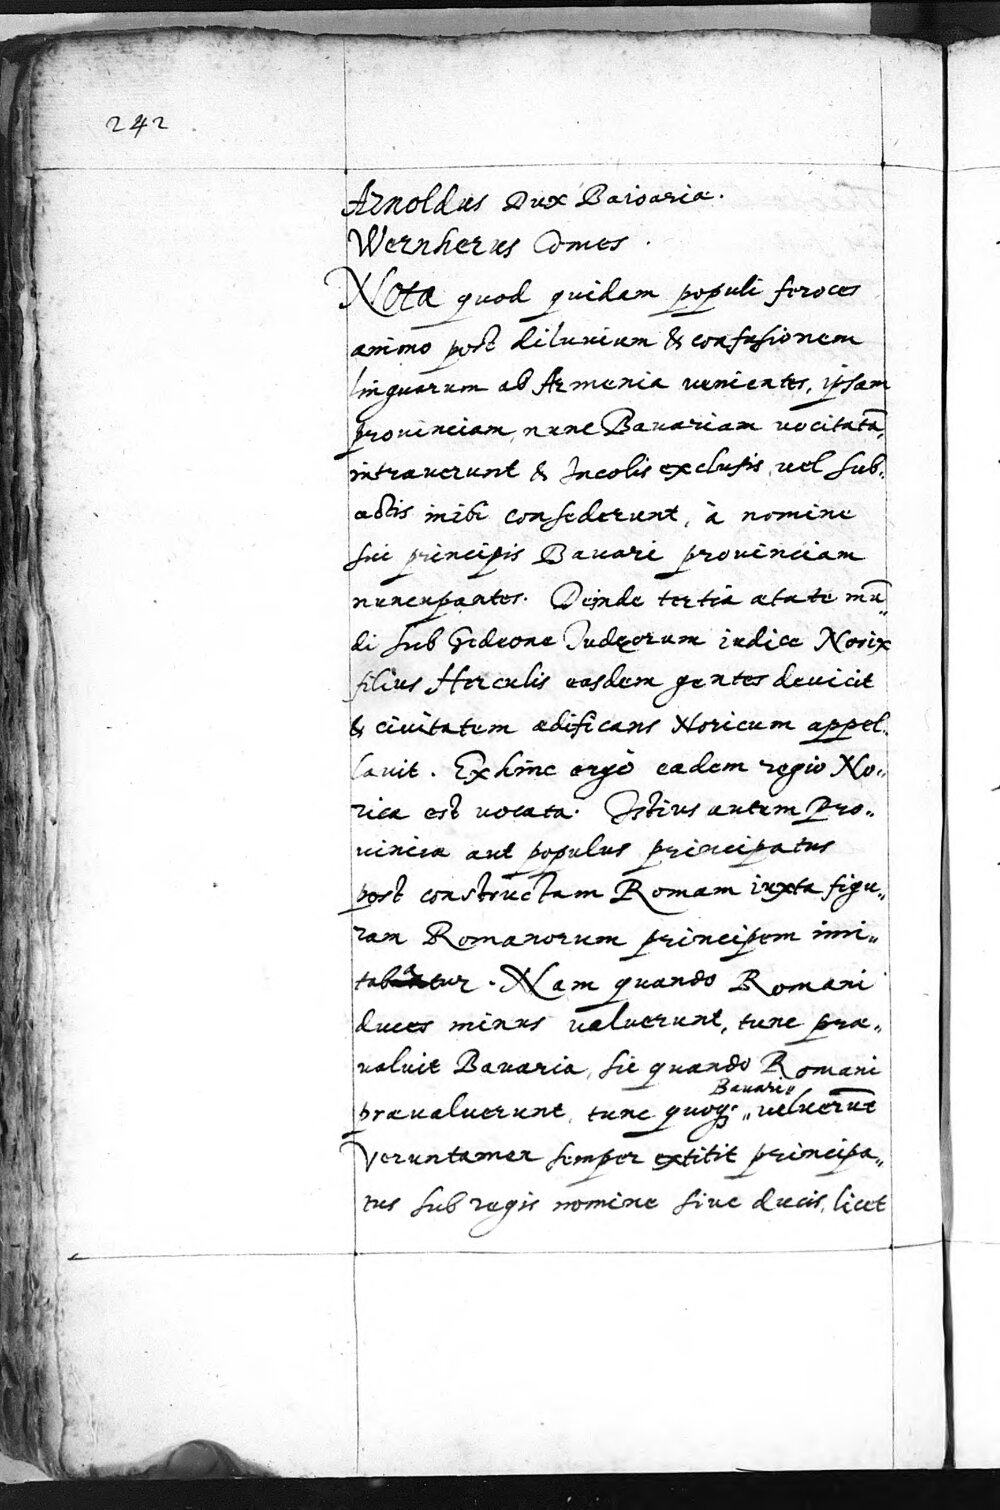 242
Arnoldus Dux Baioariæ.
Wernherus Comes.
Nota quod quidam populi feroces
animo post diluuium & confusionem
linguarum ab Armenia uenientes, ipsam
prouinciam, nunc Bauariam uocitatā,
intrauerunt & Incolis exclusis, uel sub-
actis inibi consederunt, à nomine
sui principis Bauari prouinciam
nuncupantes. Deinde tertia ætate mū„
di sub Gedeone Iudæorum iudice Norix
filius Herculis easdem gentes deuicit
& ciuitatem ædificans Noricum appel-
lauit. Ex hinc ergò eadem regio No„
rica est uocata. Istius autem Pro„
uincia aut populus principatus
post constructam Romam iuxta figu„
ram Romanorum principem imi„
tabatur. Nam quando Romani
duces minus ualuerunt, tunc præ„
ualuit Bauaria, sic quando Romani
præualuerunt, tunc quoq; „ Bauari „ ualuerūt
Veruntamen semper extitit principa„
tus sub regis nomine siue ducis, licet